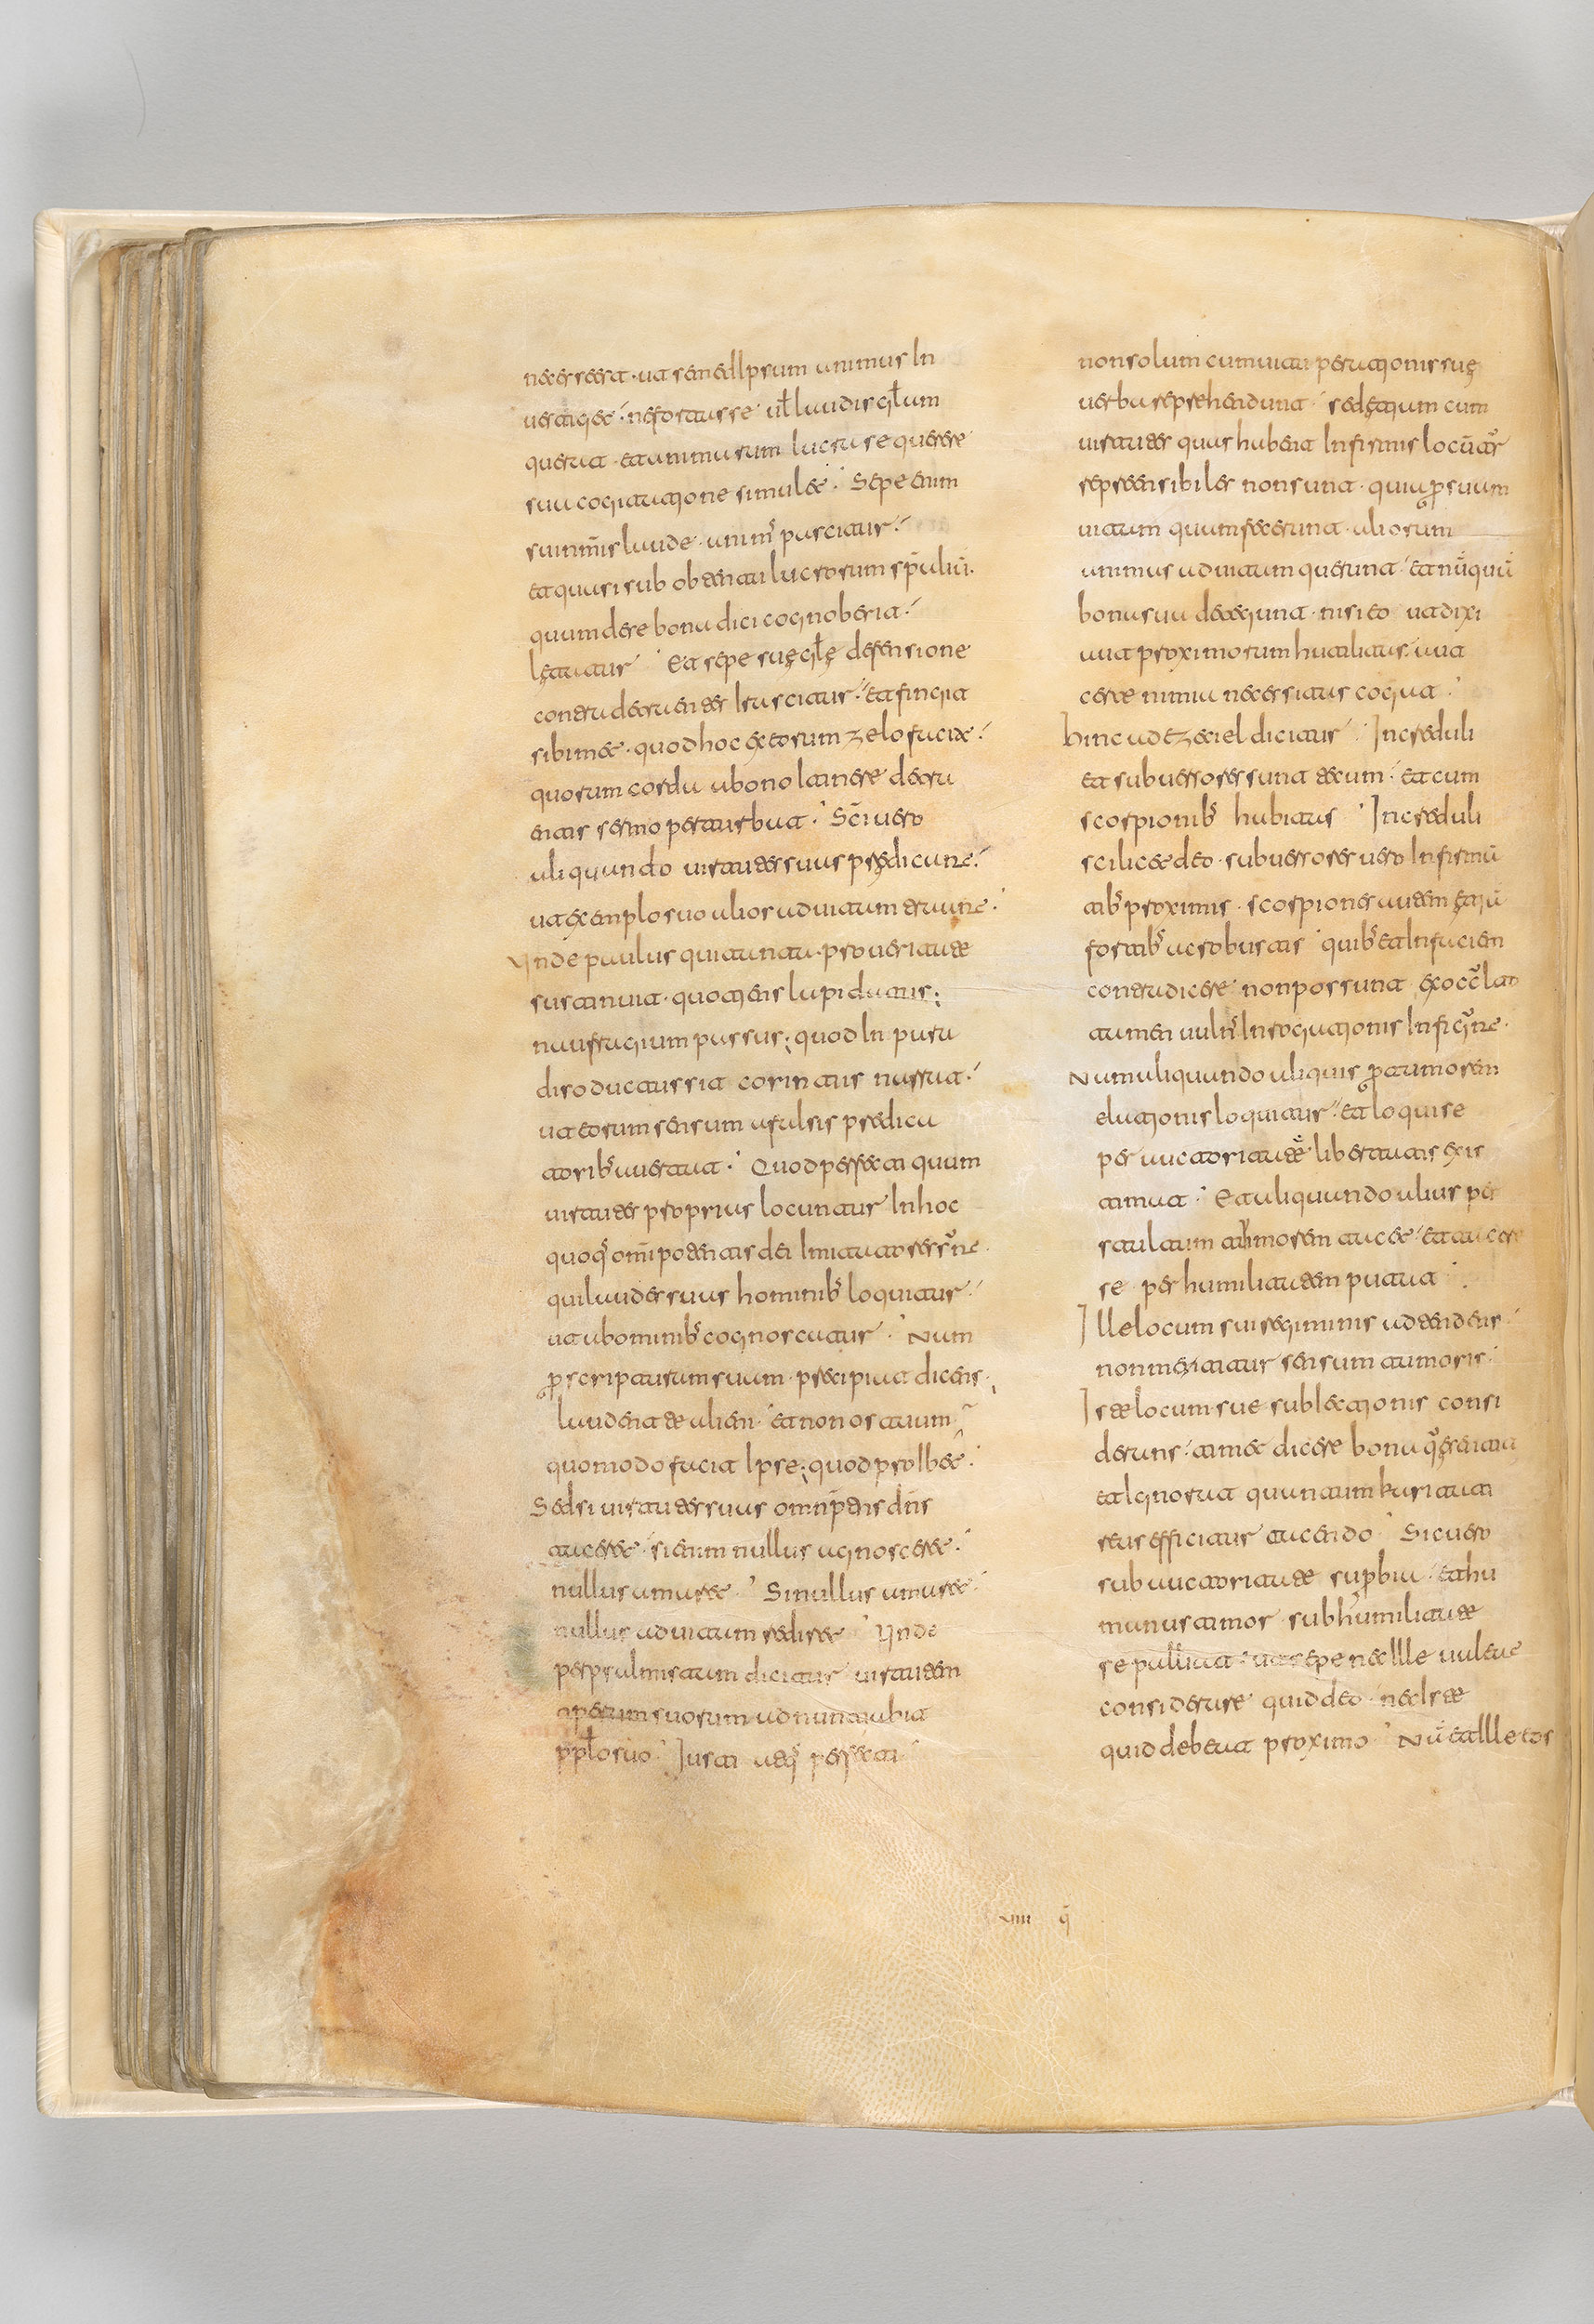 necesse est · ut semedipsum animus In
uestiget · ne fortasse uł laudis głam
querat · et animarum lucra se querere
sua cogitatione simulet : Sepe enim
sui nm̄is laude · anims pascitur
et quasi sub obtentu lucrorum sp̄aliū
quum de re bona dici cognoberit
lętatur Et sepe suę głę defensione
contra detraentes Irascitur · et fingit
sibimet · quod hoc ex eorum zelo faciat
quorum corda a bono Itinere detra
entis sermo perturbat : Sc̄i uero
aliquando uirtutes suas prędicant
ut exemplo suo alios ad uitam traant
Unde paulus pro ueritate
sustinuit · quotiens lapidatus ;
naufragium passus ; quod In para
diso ductus sit corintiis narrat
ut eorum sensum a falsis predica
toribs auertat : Quod perfecti quum
uirtutes proprias locuntur In hoc
quoqs om̄ipotentis dei Imitatores sūt
qui laudes suas hominibs loquitur
ut ab ominibs cognoscatur : Nam
ꝑ scripturam suam · precipiat dicens
laudent te alieni · et non os tuum
quomodo facit Ipse ; quod proIbet
Sed si uirtutes suas omnip̄tns dn̄s
taceret · si eum nullus agnosceret
nullus amaret Si nullus amaret
nullus ad uitam rediret Unde
per psalmistam dicitur uirtutem
operum suorum adnuntiabit
ppło suo Iusti atqs perfecti
non solum cum uitia suę
uerba reprehendunt · sed ętium cum
uirtutes quas habent Infirmis locūtr
repreensibiles non sunt · quia ꝑ suam
uitam quam fecerunt · aliorum
animas ad uitam querunt · et nūquā
bona sua detegunt · nisi eos ut dixi
aut proximorum hutilitas · aut
certe nimia necessitas cogat
hinc ad Ezeciel dicitur Increduli
et subuersores sunt tecum · et cum
scorpionibs habitas Increduli
scilicet deo · subuersores uero Infirmā
tibs proximis · scorpiones autem ętiā
fortibs ac robustis quibs et In faciem
contradicere non possunt ex occlto
tamen uulns Inrogationis Infigūt
Nam aliquando aliquis ꝑ timorem
elationis loquitur · et loqui se
per auctoritatē libertatis exis
timat : Et aliquando alius per
stultum timorem tacet · et tacere
se per humilitatem putat
Ille locum sui regiminis adtendens
non metitur sensum tumoris
Iste locum sue sublectionis consi
derans · timet dicere bona q sentit
et Ignorat quantum karitati
reus efficitur tacendo Sic uero
sub auctoritate suꝑbia · et hu
manus timor sub humilitate
se palliat · ut sepe nec Ille ualeat
considerare quid deo · nec Iste
quid debeat proximo Nā et Ille eos
xiiii q̄